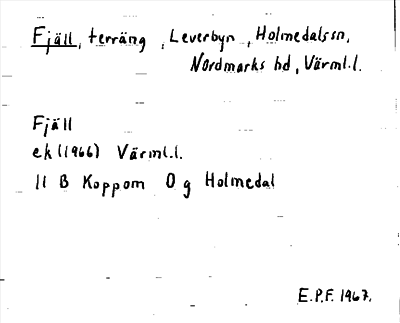 Fjäll, terräng, Leverbyn, Holmedalssn,
Nordmarks hd, Värml.l.
Fjäll
ek (1966) Värml.l.
11 B Koppom 0 g Holmedal
E.P.F. 1967.